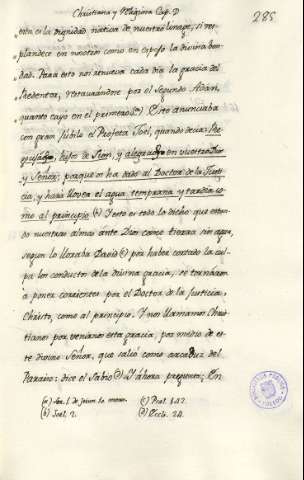 Christiana y Religiosa Cap. D
285
esta es la dignidad nativa de nuestro linage, si res-
plandece en nosotros como en espejo la divina bon-
dad. Para esto nos renueva cada dia la gracia del
Redentor, restaurandose por el Segundo Adan,
quanto cayo en el primero (a) Esto anunciaba
con gran jubilo el Profeta Joel, quando decia: Re-
gocijaos, hijos de Sion, y alegraos en vuestro Dios
y Señor; porque os ha dado al Doctor de la Justi-
cia, y hará llover el agua temprana y tardia co-
mo al principio (b) Y esto es todo lo dicho que estan-
do nuestras almas ante Dios como tierra sin agua,
segun lo lloraba David (c) por haber cortado la cul-
pa los conductos de la Divina gracia, se tornáron
a poner corrientes por el Doctor de la Justicia,
Christo, como al principio. Y nos llamamos Chris-
tianos por venirnos esta gracia, por medio de es-
te divino Señor, que salió como arcaduz del
Paraiso: dice el Sabio (d) Y ahora pregunto; En
(a) Ser. 1. de jejun. 10. mens.
(b) Joel. 2.
(c) Psal. 142.
(d) Eccli. 24.
TOLEDO